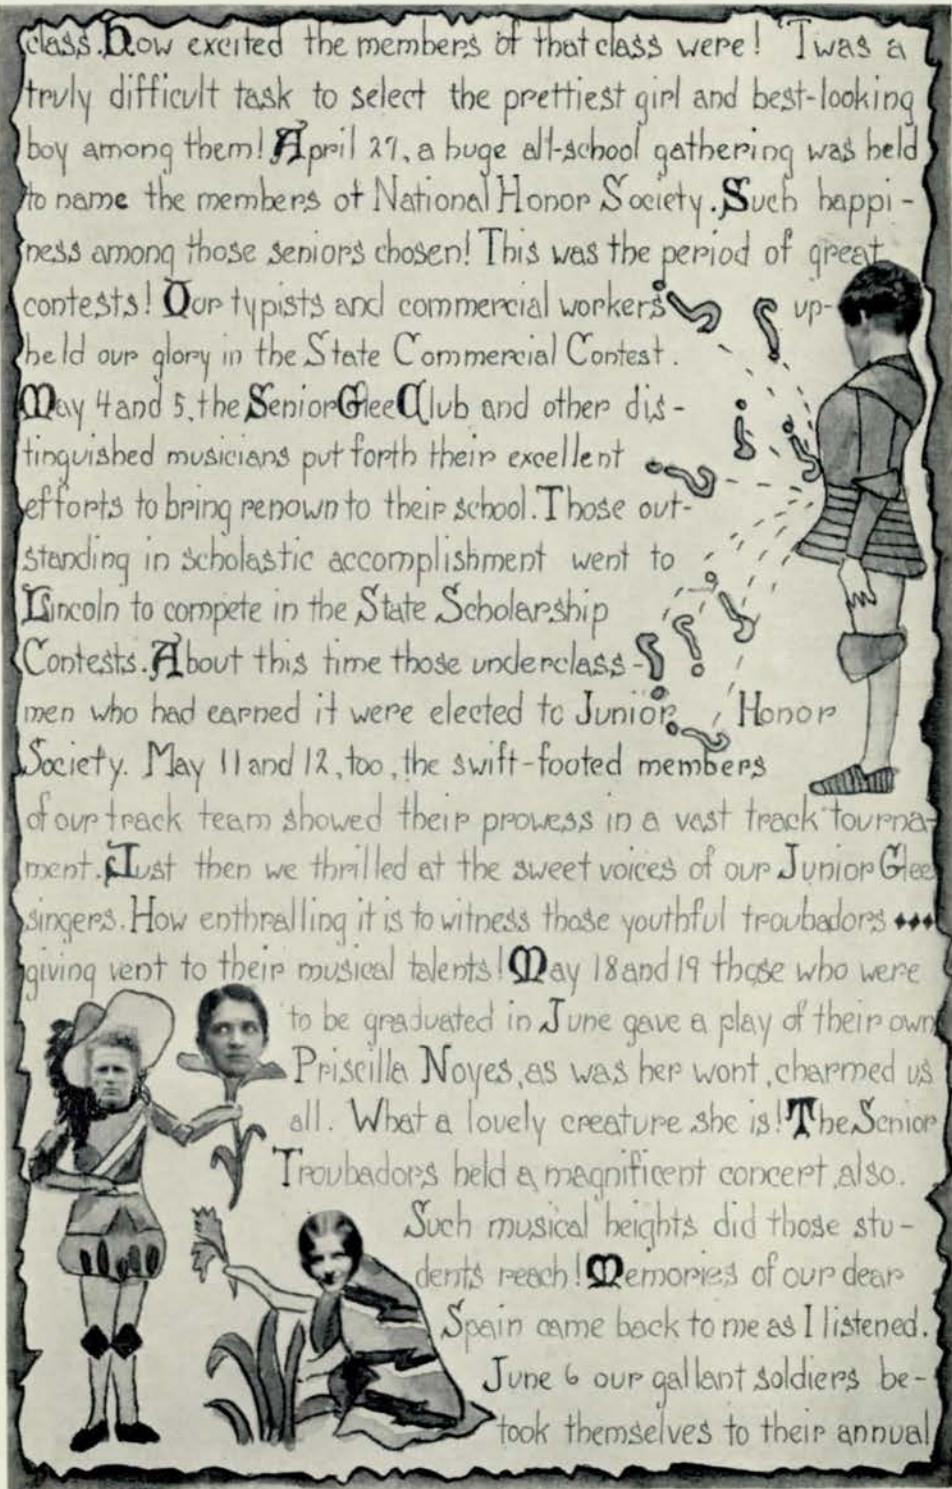 class. How excited the members of that class were! 'Twas a
truly difficult task to select the prettiest girl and best-looking
boy among them! April 27, a huge all-school gathering was held
to name the members of National Honor Society. Such happi-
ness among those seniors chosen! This was the period of great
contests! Our typists and commercial workers up-
held our glory in the State Commercial Contest.
May 4 and 5, the Senior Glee Club and other dis-
tinguished musicians put forth their excellent
efforts to bring renown to their school. Those out-
standing in scholastic accomplishment went to
Lincoln to compete in the State Scholarship
Contests. About this time those underclass-
men who had earned it were elected to Junior Honor
Society. May 11 and 12, too, the swift-footed members
of our track team showed their prowess in a vast track tourna-
ment. Just then we thrilled at the sweet voices of our Junior Glee
singers. How enthralling it is to witness those youthful troubadors
giving vent to their musical talents! May 18 and 19 those who were
to be graduated in June gave a play of their own
Priscilla Noyes, as was her wont, charmed us
all. What a lovely creature she is! The Senior
Troubadors held a magnificent concert, also.
Such musical heights did those stu-
dents reach! Memories of our dear
Spain came back to me as I listened.
June 6 our gallant soldiers be-
took themselves to their annual